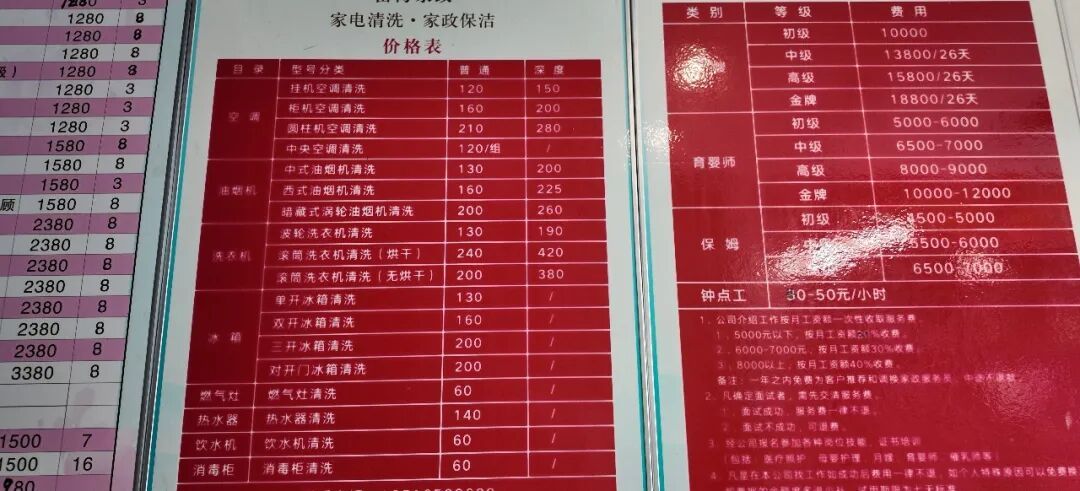 1280 8
1280 8
1280 8
1280 8
1280 3
1280 3
1280 3
1580 8
1580 3
顾 1580 8
2380 8
2380 8
2380 8
2380 8
2380 8
2380 8
3380 8
1500 7
1500 16
家电清洗·家政保洁
价格表
目录 型号分类 普通 深度
空调
挂机空调清洗 120 150
柜机空调清洗 160 200
圆柱机空调清洗 210 280
中央空调清洗 120/组 /
油烟机
中式油烟机清洗 130 200
西式油烟机清洗 160 225
暗藏式涡轮油烟机清洗 200 260
洗衣机
波轮洗衣机清洗 130 190
滚筒洗衣机清洗(烘干) 240 420
滚筒洗衣机清洗(无烘干) 200 380
冰箱
单开冰箱清洗 130 /
双开冰箱清洗 160 /
三开冰箱清洗 200 /
对开门冰箱清洗 200 /
燃气灶 燃气灶清洗 60 /
热水器 热水器清洗 140 /
饮水机 饮水机清洗 60 /
消毒柜 消毒柜清洗 60 /
类别 等级 费用
初级 10000
中级 13800/26天
高级 15800/26天
金牌 18800/26天
育婴师
初级 5000-6000
中级 6500-7000
高级 8000-9000
金牌 10000-12000
保姆
初级 4500-5000
中 5500-6000
6500-7000
钟点工 30-50元/小时
1、公司介绍工作按月工资额一次性收取服务费。
1、5000元以下，按月工资额20%收费。
2、6000-7000元，按月工资额30%收费。
3、8000以上，按月工资额40%收费。
备注：一年之内免费为客户推荐和调换家政服务员，中途不退款
2、凡确定面试者，需先交清服务费。
1、面试成功，服务费一律不退。
2、面试不成功，可退费。
3、经公司报名参加各种岗位技能、证书培训
(包括：医疗照护、母婴护理、月嫂、育婴师、催乳师等)
4、凡是在本公司找工作如成功后费用一律不退，如个人特殊原因可以免费换